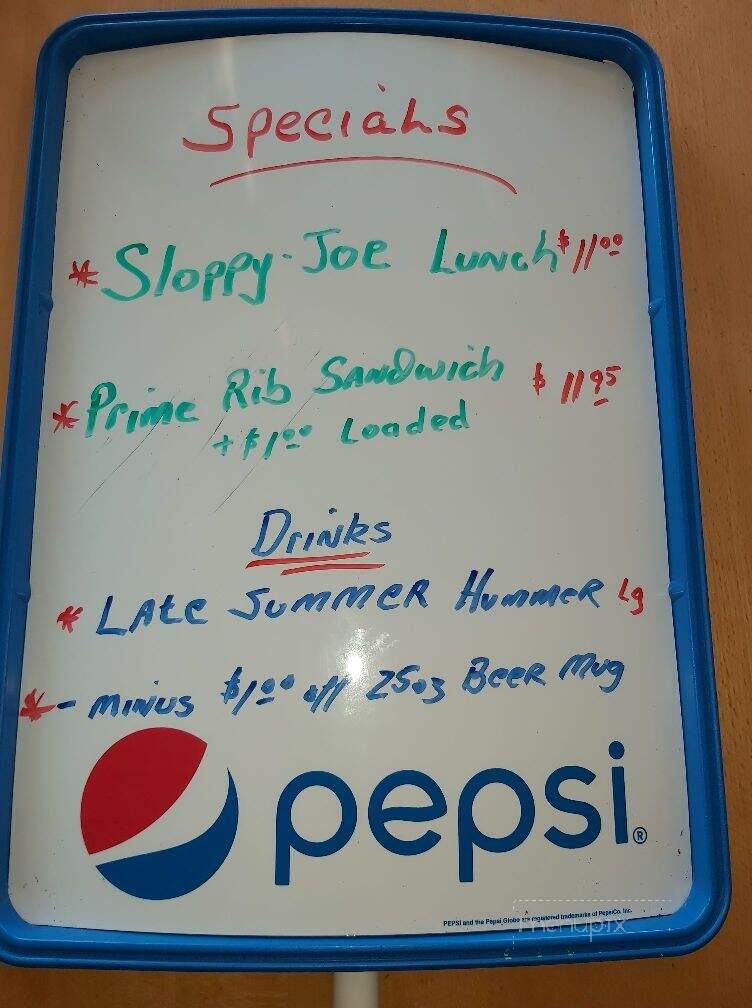 Specials
* Sloppy-Joe Lunch $11.00
* Prime Rib Sandwich $11.95
+ $1.00 Loaded
Drinks
* Late Summer Hummer Lg
* - minus $1.00 off 25oz Beer Mug
pepsi®
PEPSI and the Pepsi Globe are registered trademarks of PepsiCo, Inc.
menupix